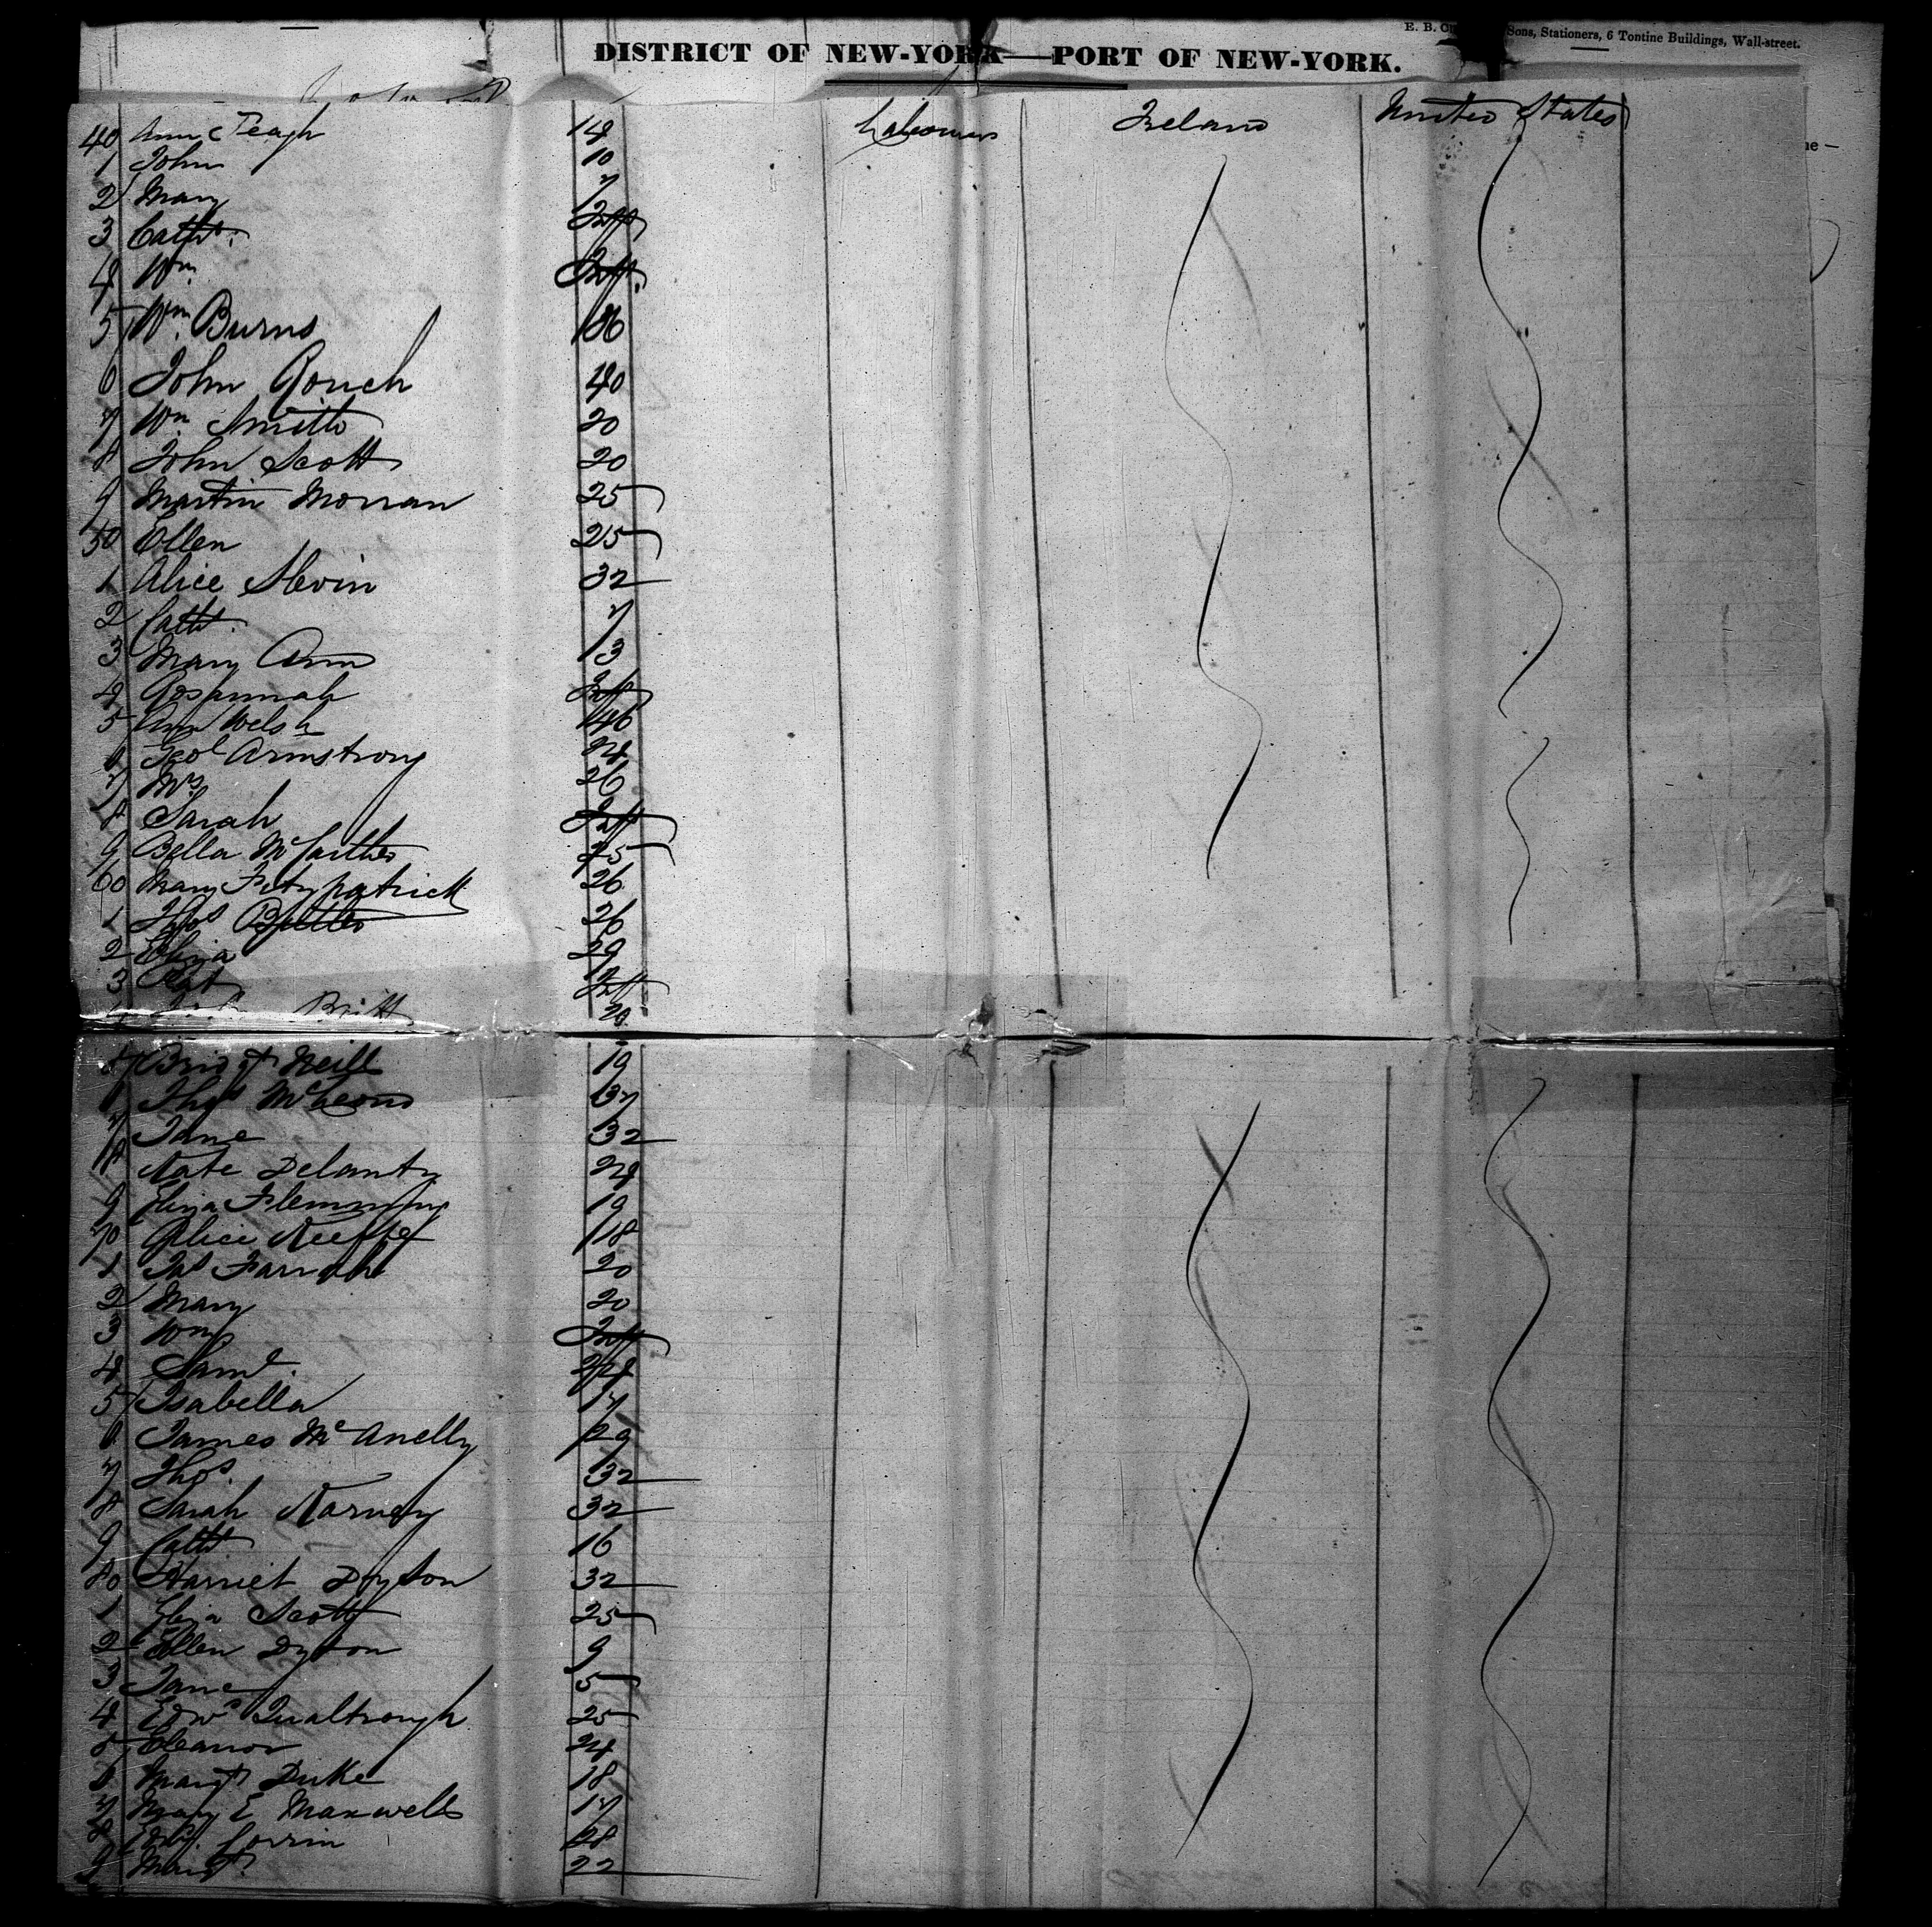 Sons, Stationers, 6 Tontine Buildings, Wall-street.
DISTRICT OF NEW-YORK—PORT OF NEW-YORK.
40 Ann 14 Labourers Ireland United States
1 John 10
2 Mary 7
3 Cath. Inft
4 Wm Inft.
5 Wm Burns
6 John Rouch 40
7 Wm Smith 20
8 John Scott 20
9 Martin Morran 25
50 Ellen 25
1 Alice Slevin 32
2 Cath. 7
3 Mary Ann 13
4 Rosannah Inft
5 Ann Welsh 46
6 Geo Armstrong 24
7 Mrs 26
8 Sarah Inft
9 Bella McCarther 25
60 Mary Fitzpatrick 26
1 Thos Butler 26
2 Eliza 29
3 Pat Inft
Britt 20
5 Bridgt Neill 19
6 Thos 37
7 Jane 32
8 Kate Delanty 24
9 Eliza Flemming 19
70 Alice Keeffe 18
1 Jas Farrah 20
2 Mary 20
3 Wm Inft
4 Saml. 24
5 Isabella 17
6 James McAnelly 29
7 Thos. 32
8 Sarah Karney 32
9 Cath 16
80 Harriet Dyson 32
1 Eliza Scott 25
2 Ellen Dyson 9
3 Jane 5
4 Edwd Qualtrough 25
5 Eleanor 24
6 Margt Duke 18
7 Mary E Maxwell 17
8 Corrin 28
9 Margt 22